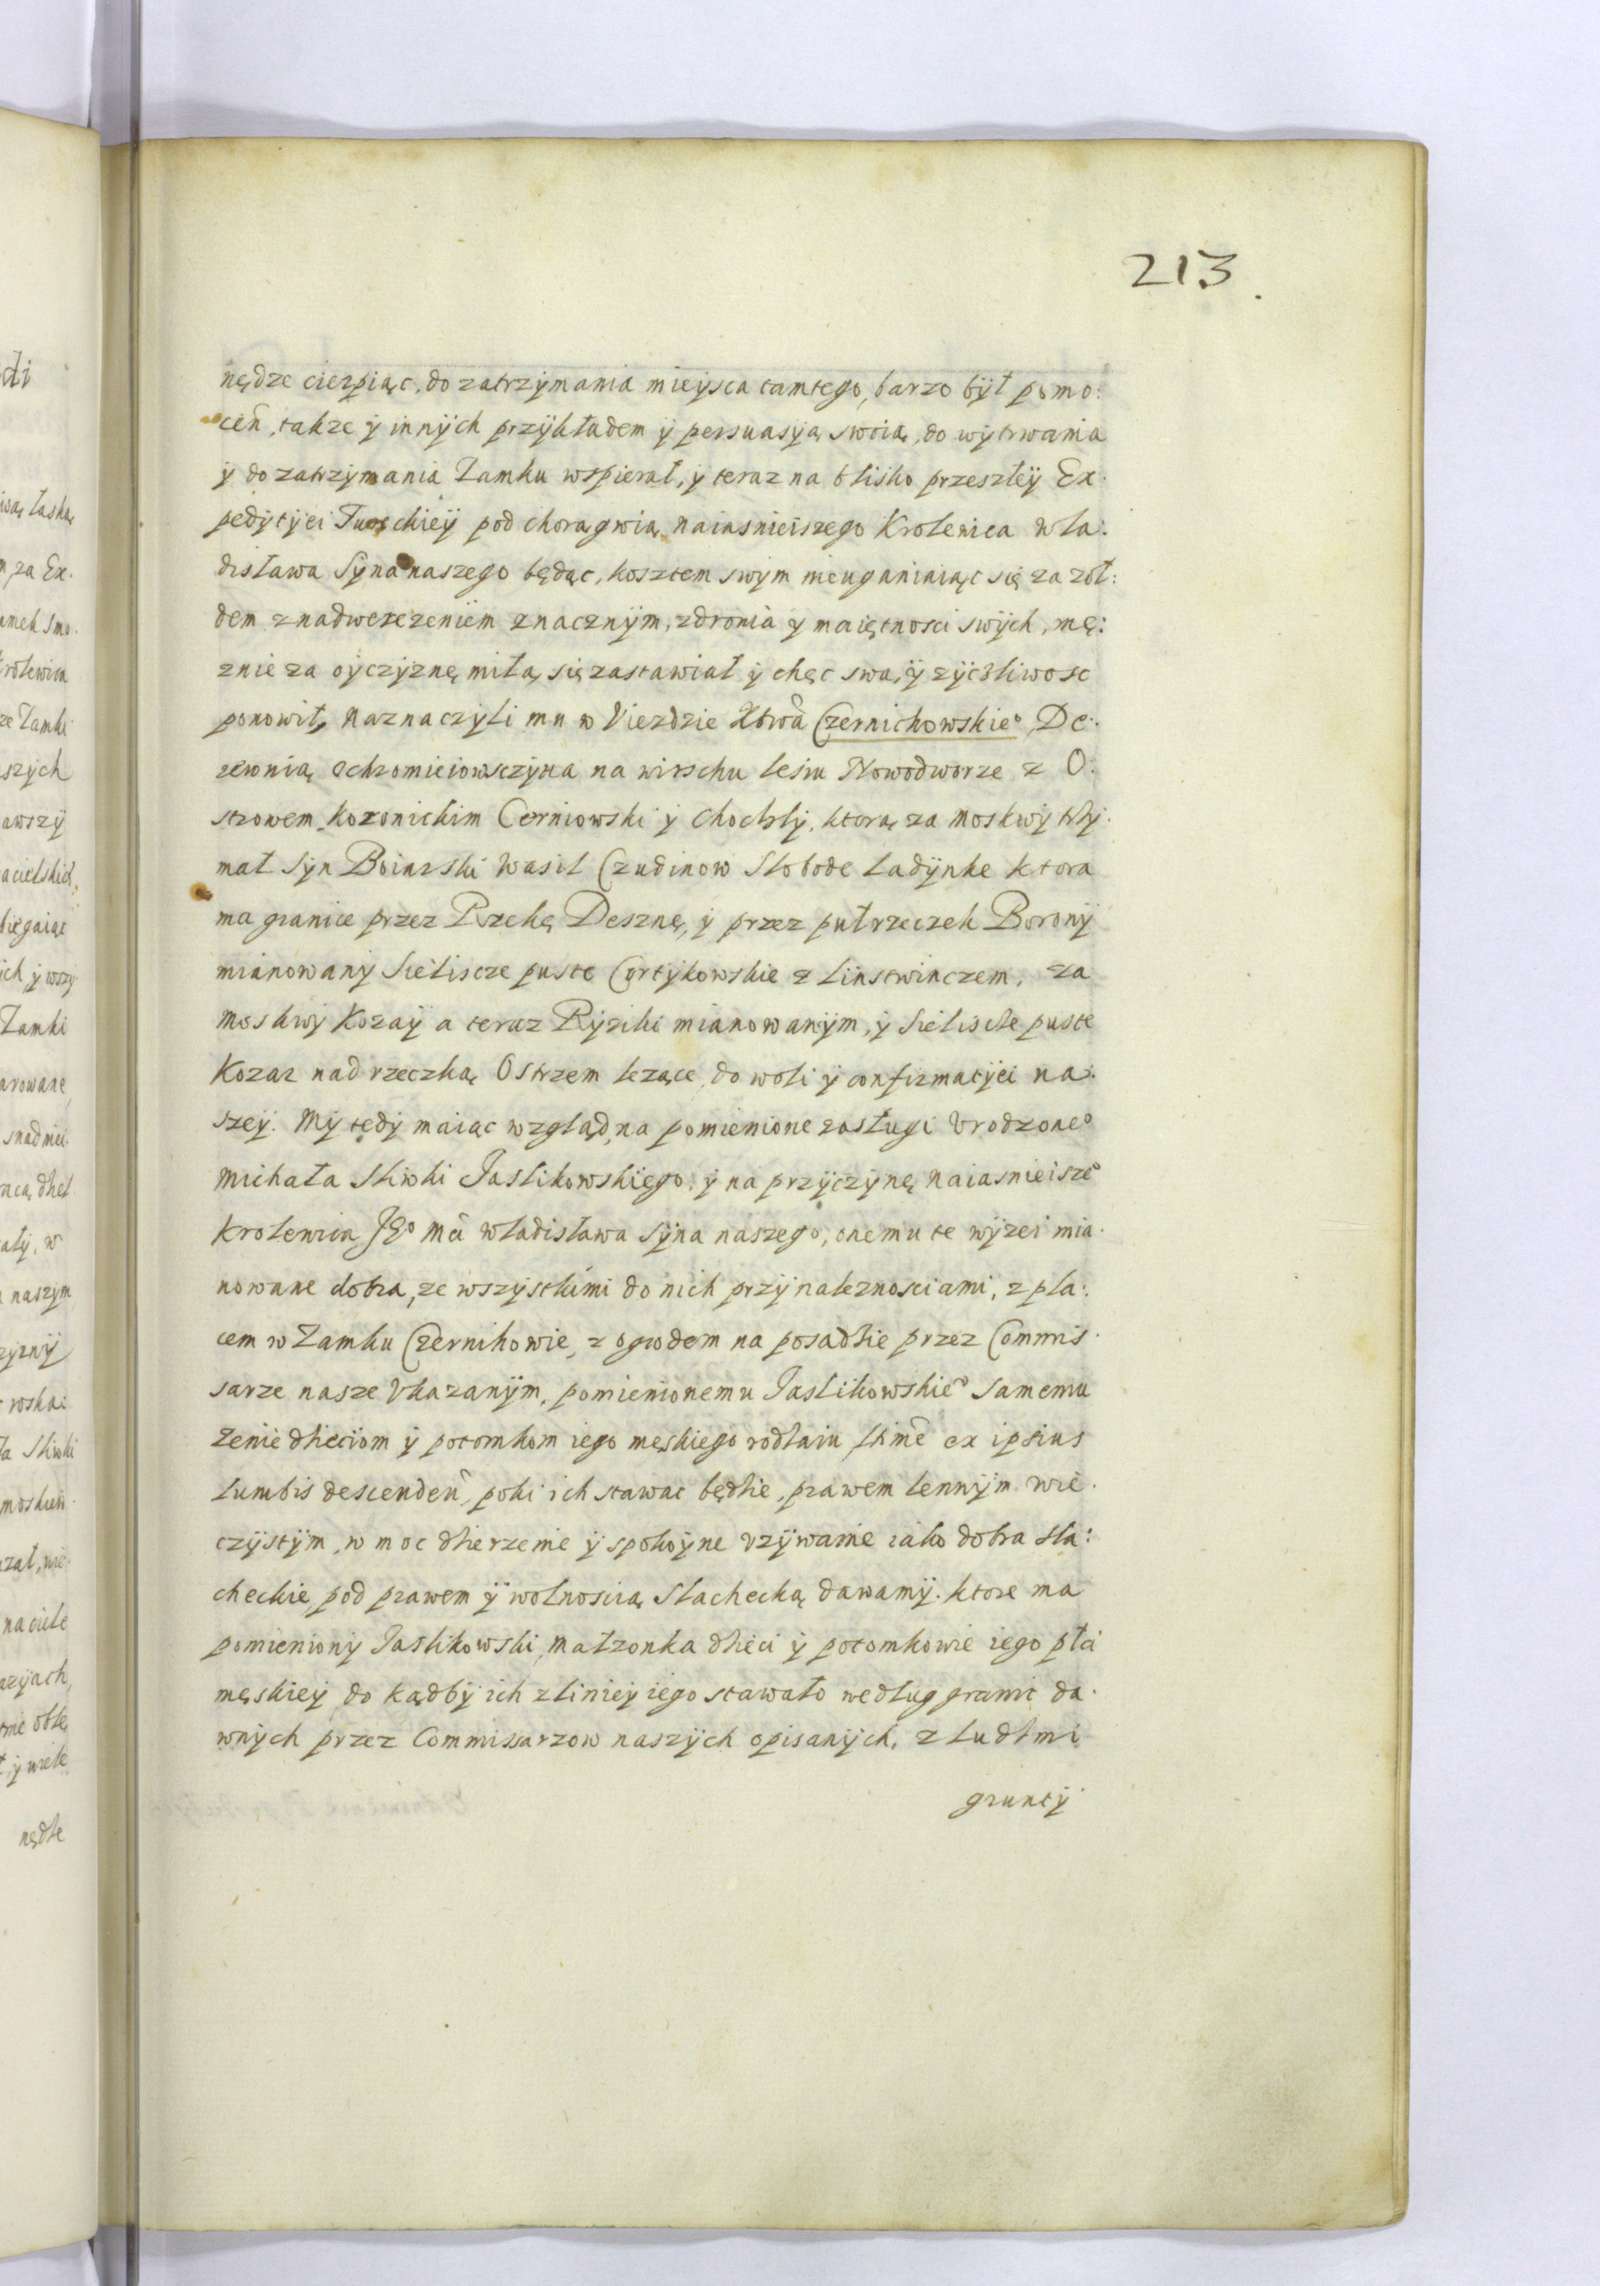 213.
nędze cierpiąc, do zatrzymania mieysca tamtego, barzo był pomo:
cen̄, takze ÿ innÿch przÿkładem ÿ persuasÿą swoią, do wÿtrwania
ÿ do zatrzymania Zamku wspierał, ÿ teraz na blisko przeszłeÿ Ex.
pedÿtÿei Tureckieÿ pod chorągwią naiasnieiszego Krolewica Wła:
disława Sÿna naszego będąc, kosztem swym nieuganiaiąc się za żoł:
dem z nadwerezeniem znacznÿm, zdrowia ÿ maiętnosci swÿch, mę:
znie za oÿczÿznę miłą się zastawiał ÿ chęc swą, ÿ zÿczliwosc
ponowił, Naznaczÿli mu w Viezdzie Xtwa Czernichowskie° De:
rewnią Ochromieiowsczÿzna na wirschu lesiu Nowodworze z O.
strowem Kozonickim Cerniowski ÿ Chochly, ktorą za Moskwÿ trzÿ.
mał Sÿn Boiarski Wasil Czudinow Słobode Ladÿnke ktora
ma granice przez Rzekę Desznę, ÿ przez puł rzeczek Boronÿ
mianowanÿ Sieliscze puste Cortÿkowskie z Linstwinczem, za
Moskwÿ Kozaÿ a teraz Rÿziki mianowanÿm, ÿ Sieliscze puste
Kozar nad rzeczką Ostrzem lezące, do woli ÿ confirmatÿei na.
szeÿ. Mÿ tedÿ maiąc wzgląd, na pomienione zasługi Vrodzone°
Michała Sliwki Jaslikowskiego, ÿ na przÿczÿnę naiasnieisze°
Krolewica JE° Mci Władisława Sÿna naszego, onemu te wÿzei mia.
nowane dobra, ze wszÿstkimi do nich przÿnaleznosciami, z pla:
cem w Zamku Czernihowie, z ogrodem na posadzie przez Commis.
sarze nasze Vkazanÿm, pomienionemu Jaslikowskie° samemu
Zenie dzieciom ÿ potomkom iego męskiego rodzaiu ex ipsius
lumbis descenden̄, poki ich stawac będzie, prawem lennÿm wie.
czÿstÿm, w moc dzierzenie ÿ spokoÿne vzÿwanie iako dobra sla:
checkie pod prawem ÿ wolnoscią slachecką dawamÿ. ktore ma
pomienionÿ Jaslikowski, małzonka dzieci ÿ potomkowie iego płci
męskieÿ do kądbÿ ich z linieÿ iego stawało według granic da.
wnÿch przez Commissarzow naszÿch opisanÿch, z ludzmi
gruntÿ